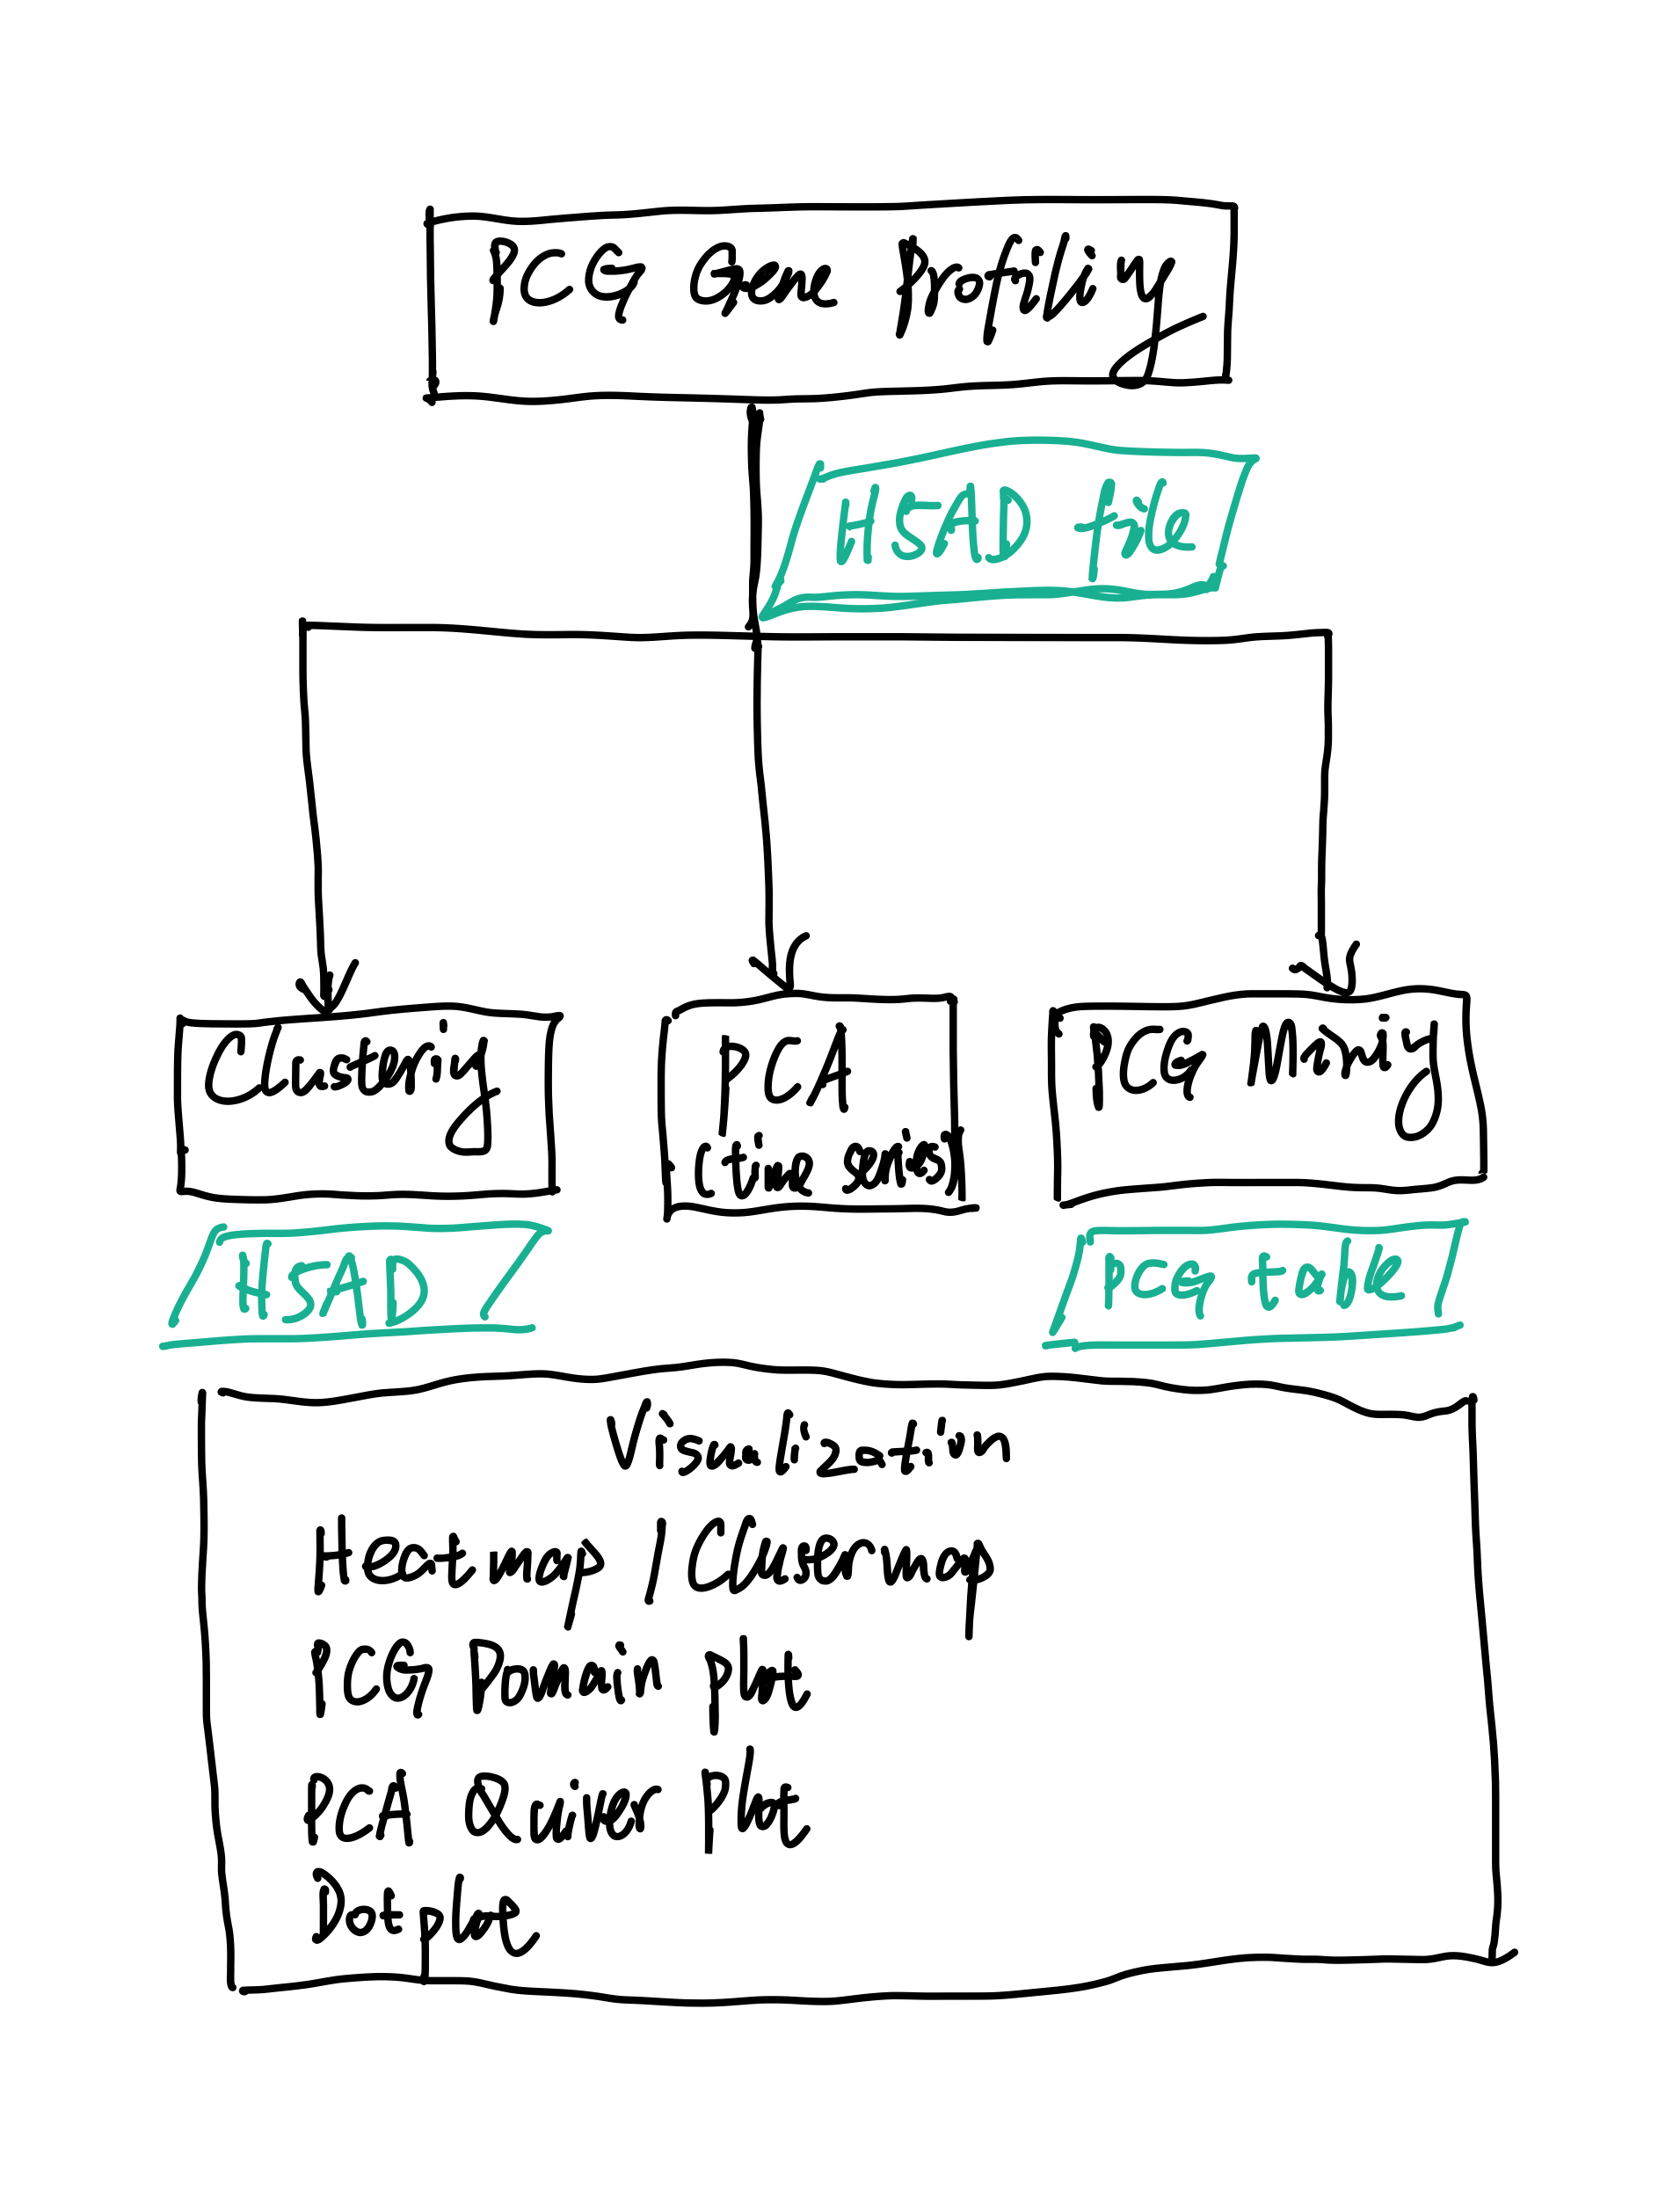 PCG Gene Profiling
H5AD file
Clustering
PCA
(time series)
PCG Mining
H5AD
PCG table
Visualization
Heatmap / Clustermap
PCG Domain plot
PCA Quiver Plot
Dotplot